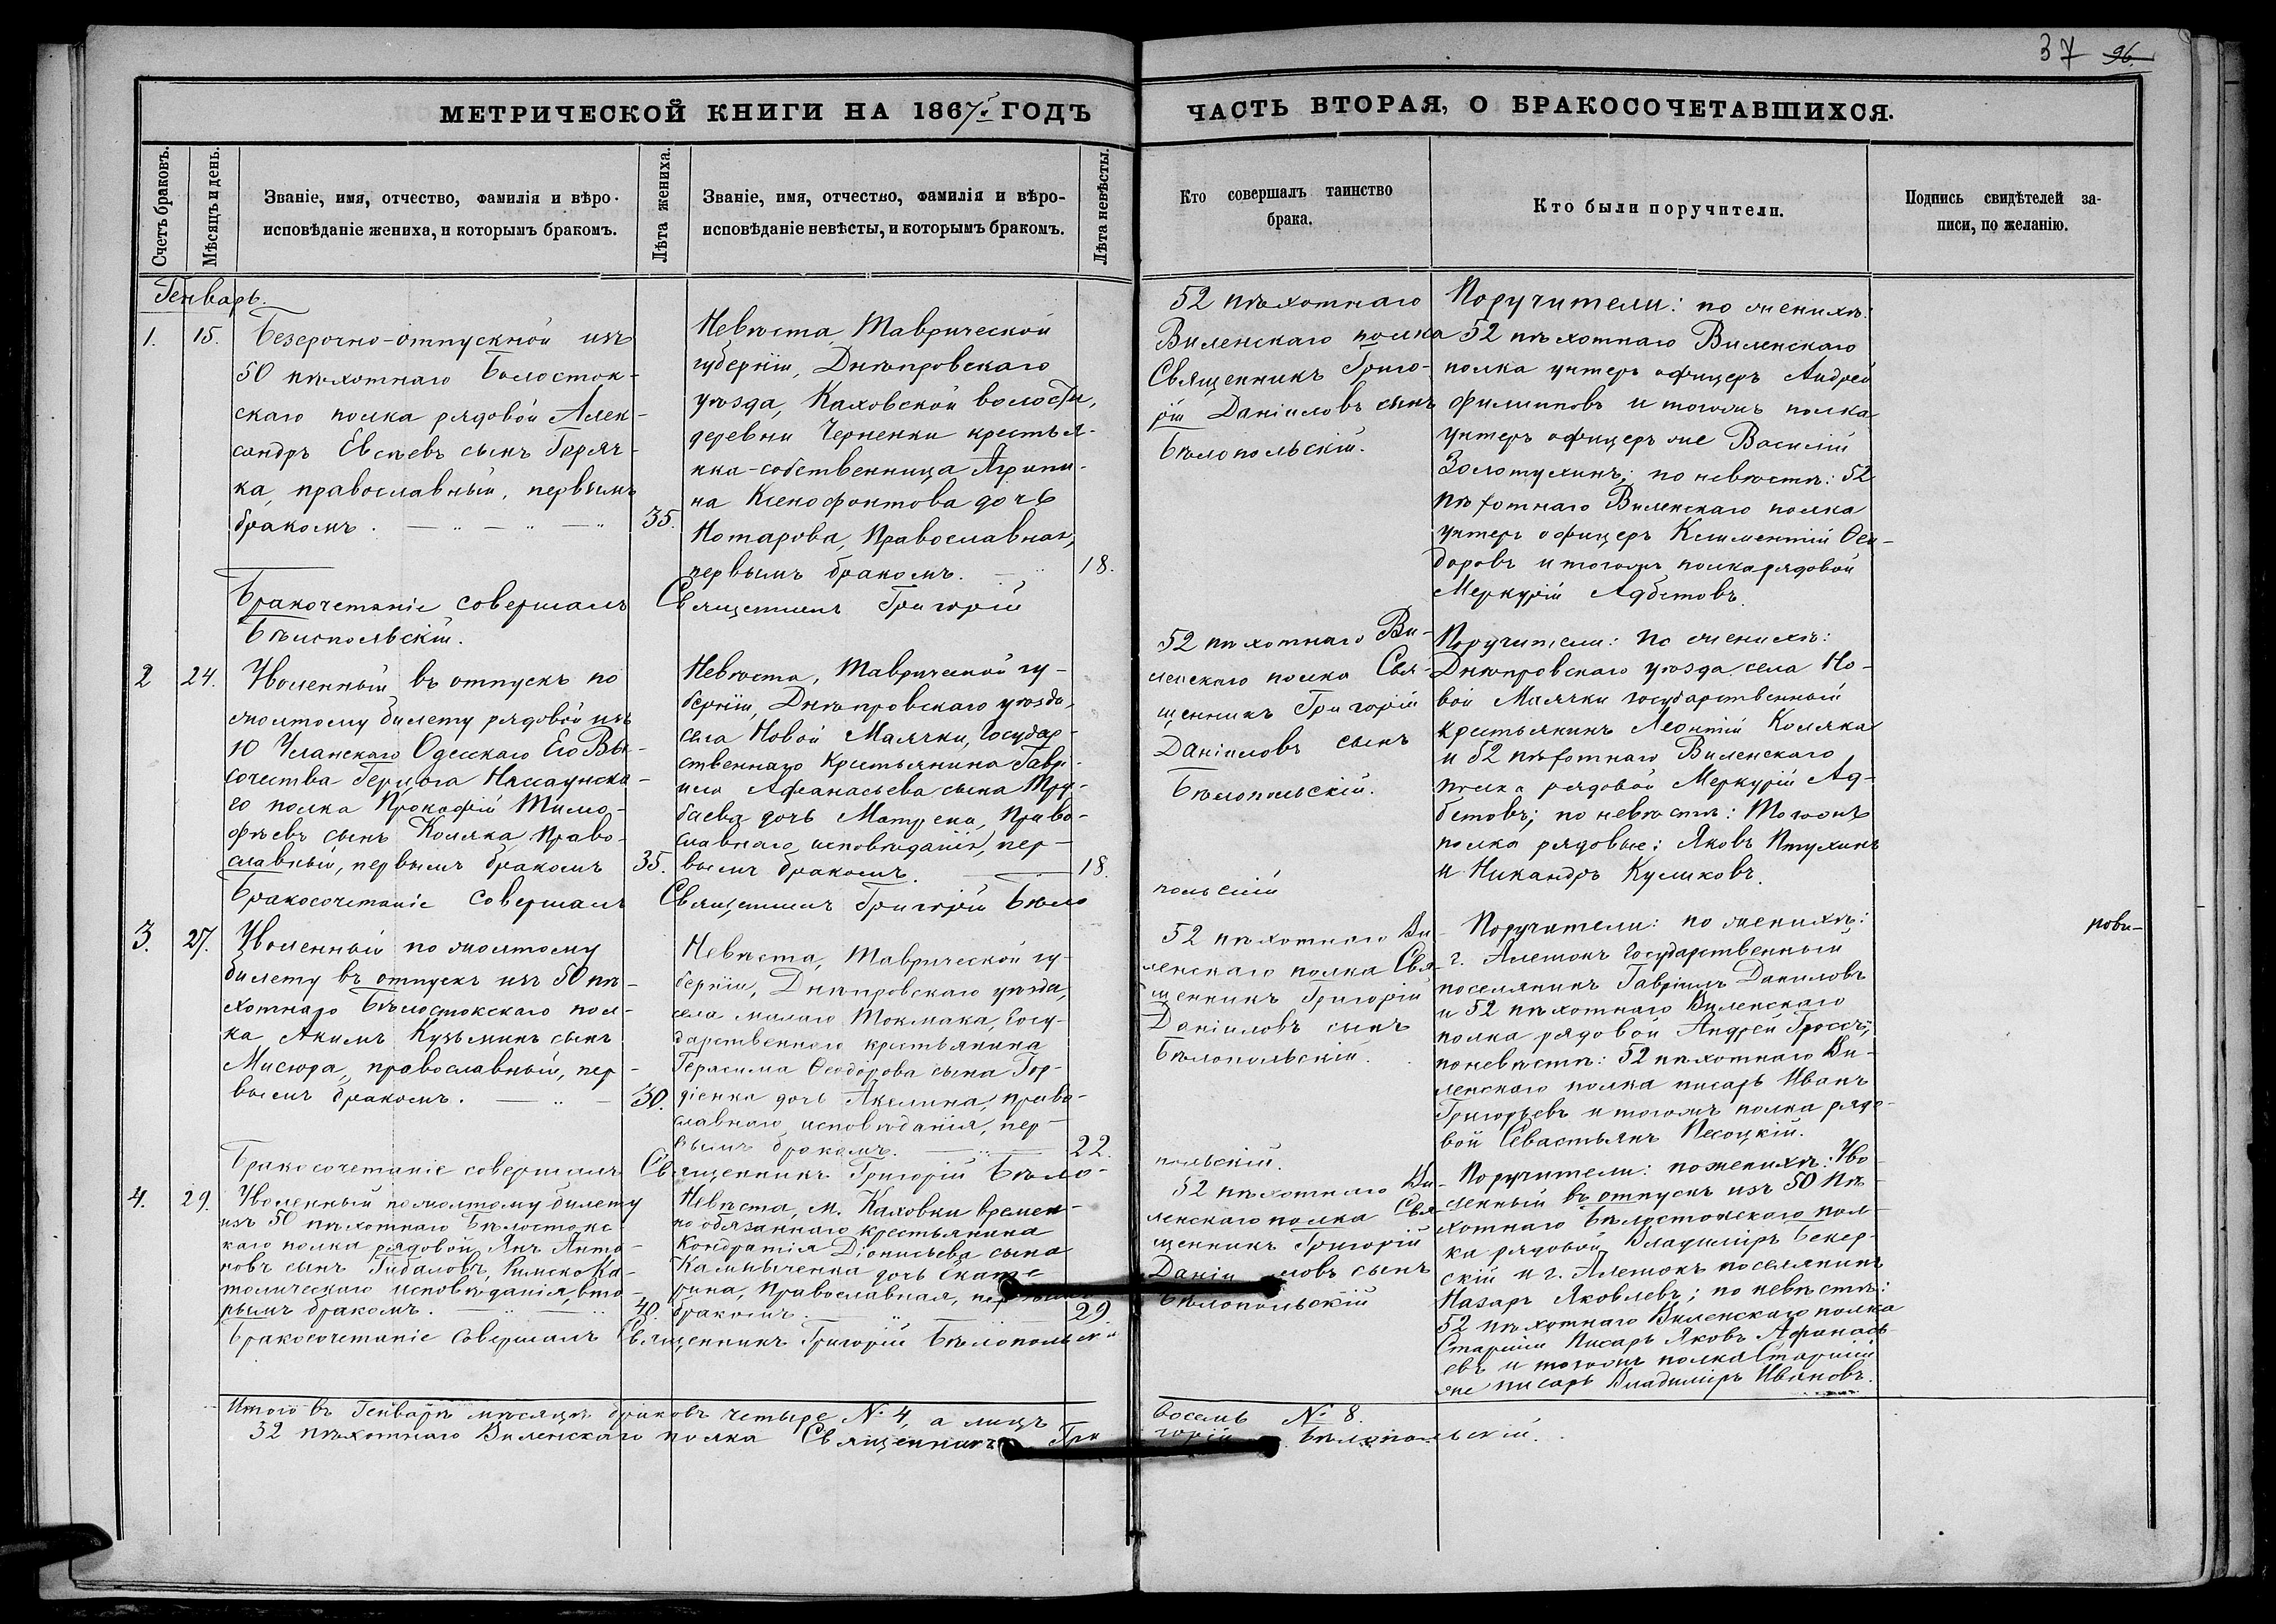 37 96.
МЕТРИЧЕСКОЙ КНИГИ НА 1867й ГОДЪ
ЧАСТЬ ВТОРАЯ, О БРАКОСОЧЕТАВШИХСЯ.
Счетъ браковъ.
Мѣсяцъ и день.
Званіе, имя, отчество, фамилія и вѣро-
исповѣданіе жениха, и которымъ бракомъ.
Лѣта жениха.
Званіе, имя, отчество, фамилія и вѣро-
исповѣданіе невѣсты, и которымъ бракомъ.
Лѣта невѣсты.
Кто совершалъ таинство
брака.
Кто были поручители.
Подпись свидѣтелей за-
писи, по желанію.
Генварь.
1.
15.
Безсрочно-отпускной изъ
50 пѣхотнаго Бѣлосток-
скаго полка рядовой Алек-
сандръ Евсѣевъ сынъ Горяч-
ка, православный, первымъ
бракомъ.
35.
Невѣста, Таврической
губерніи, Днѣпровскаго
уѣзда, Каховской волости,
деревни Черненки крестья-
нка-собственница Агрипи-
на Ксенофонтова дочь
Нотарова, Православная,
первымъ бракомъ.
18.
52 пѣхотнаго
Виленскаго полка
Священникъ Григо-
рій Даніиловъ сынъ
Бѣлопольскій.
Поручители: по женихѣ:
52 пѣхотнаго Виленскаго
полка унтеръ офицеръ Андрей
Филиповъ и тогожъ полка
унтеръ офицеръ же Василій
Золотухинъ; по невѣстѣ: 52
пѣхотнаго Виленскаго полка
унтеръ офицеръ Климентій Ѳеи-
доровъ и тогожъ полка рядовой
Меркурій Адбетовъ.
Бракочетаніе совершалъ Священникъ Григорій
Бѣлопольскій.
2
24.
Уволенный въ отпускъ по
жолтому билету рядовой изъ
10 Уланскаго Одесскаго Его Вы-
сочества Герцога Нассаунска-
го полка Прокофій Тимо-
фѣевъ сынъ Коляка, Право-
славный, первымъ бракомъ
35.
Невѣста, Таврической гу-
берніи, Днѣпровскаго уѣзда,
села Новой Маячки, Государ-
ственнаго Крестьянина Гаврі-
ила Афанасьева сына Тру-
баева дочь Матрена, Право-
славнаго исповѣданія, пер-
вымъ бракомъ.
18.
52 пѣхотнаго Ви-
ленскаго полка Свя-
щенникъ Григорій
Даніиловъ сынъ
Бѣлопольскій.
Поручители: По женихѣ:
Днѣпровскаго уѣзда села Но-
вой Маячки государственный
крестьянинъ Леонтій Коляка
и 52 пѣхотнаго Виленскаго
полка рядовой Меркурій Ад-
бетовъ; по невѣстѣ: Тогожъ
полка рядовые: Яковъ Птухинъ
и Никандръ Куликовъ.
Бракосочетаніе Совершалъ Священникъ Григорій Бѣло
польскій
3.
27.
Уволенный по жолтому
билету въ отпускъ изъ 50 пѣ-
хотнаго Бѣлостокскаго пол-
ка Акимъ Кузьминъ сынъ
Мисюра, православный, пер-
вымъ бракомъ.
30.
Невѣста, Таврической гу-
берніи, Днѣпровскаго уѣзда,
села малаго Токмака, Госу-
дарственнаго крестьянина
Герасима Ѳеодорова сына Гор-
діенка дочь Акелина, право-
славнаго исповѣданія, пер-
вымъ бракомъ.
22.
52 пѣхотнаго Ви-
ленскаго полка Свя-
щенникъ Григорій
Даніиловъ сынъ
Бѣлопольскій.
Поручители: по женихѣ:
г. Алешокъ Государственный
поселянинъ Гавріилъ Даниловъ
и 52 пѣхотнаго Виленскаго
полка рядовой Андрей
по невѣстѣ: 52 пѣхотнаго Ви-
ленскаго полка писарь Иванъ
Григорьевъ и тогожъ полка рядо-
вой Севастьянъ Песоцкій.
рови-
Бракосочетаніе совершалъ Священникъ Григорій Бѣло-
польскій.
4.
29.
Уволенный по жолтому билету
изъ 50 пѣхотнаго Бѣлостокс
каго полка рядовой Янъ Анто-
новъ сынъ Гидаловъ, Римско Ка-
толическаго исповѣданія, вто-
рымъ бракомъ.
40.
Невѣста, м. Каховки времен-
но обязаннаго крестьянина
Кондратія Діонисьева сына
Камнѣченка дочь Екате
рина, Православная, первымъ
бракомъ.
29.
52 пѣхотнаго Ви-
ленскаго полка Свя
щенникъ Григорій
Даніиловъ сынъ
Бѣлопольскій
Поручители: по женихѣ: Уво-
ленный въ отпускъ изъ 50 Пѣ-
хотнаго Бѣлостокскаго пол-
ка рядовой Владиміръ Бекер-
скій и г. Алешокъ поселянинъ
Назаръ Яковлевъ; по невѣстѣ:
52 пѣхотнаго Виленскаго полка
Старшій Писарь Яковъ Афанась-
евъ и тогожъ полка Старшій
же писарь Владиміръ Ивановъ.
Бракосочетаніе Совершалъ Священникъ Григорій Бѣлопольскій
Итого въ Генварѣ мѣсяцѣ браковъ четыре № 4, а лицъ восемь № 8.
52 пѣхотнаго Виленскаго полка Священникъ Григорій Бѣлопольскій.